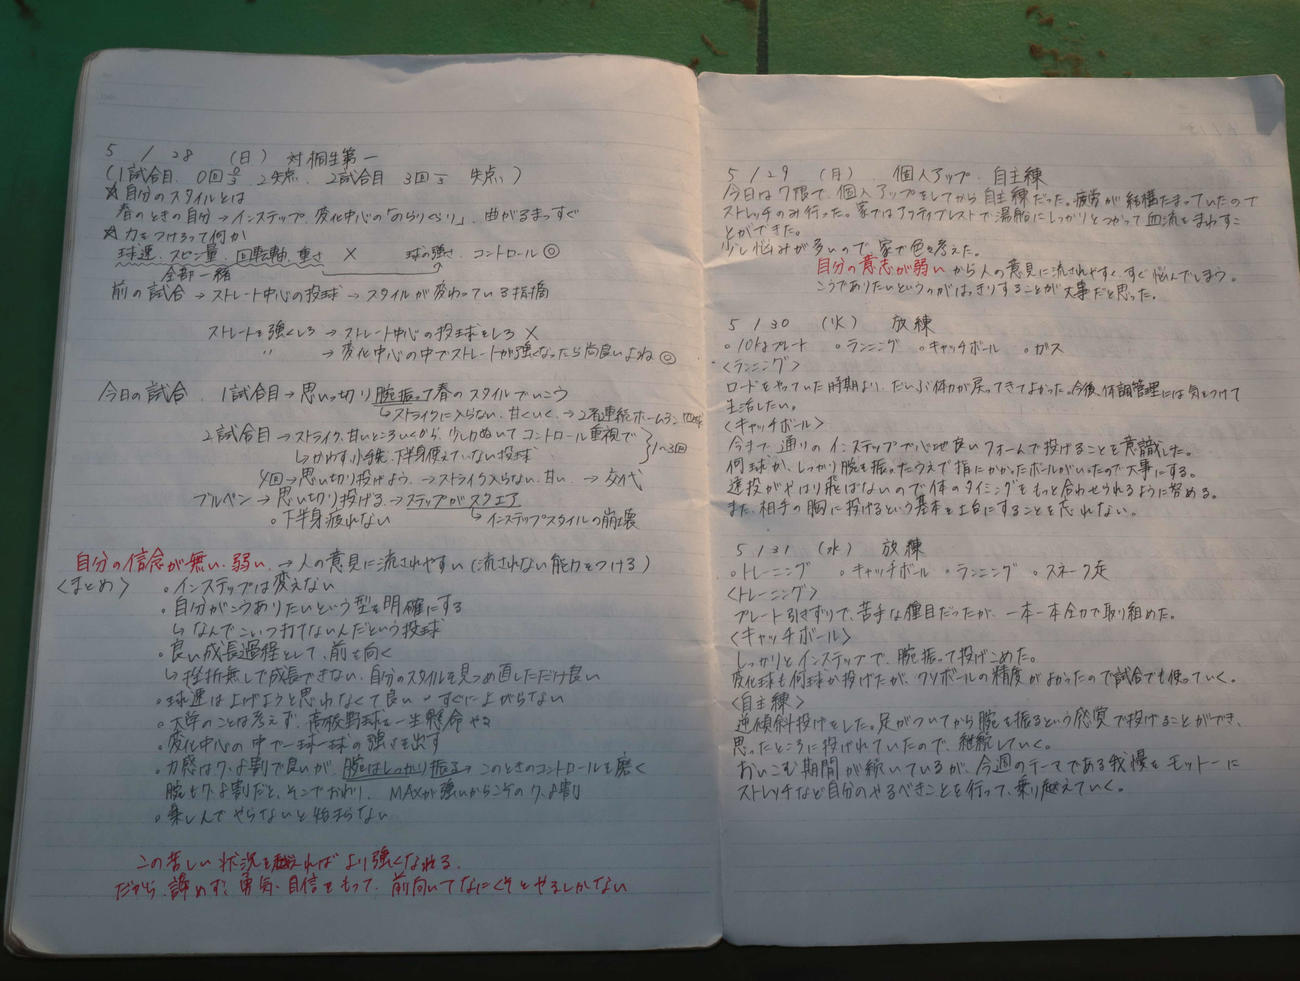 5/28 (日) 対桐生第一
(1試合目、0回 2/3 2失点、2試合目 3回 失点)
☆自分のスタイルとは
春のときの自分→インステップ、変化中心の「のらりくらり」、曲がるまっすぐ
☆力をつけるって何か
球速、スピン量、回転軸、重さ × 球の強さ、コントロール◎
全部一緒
前の試合→ストレート中心の投球→スタイルが変わっている指摘
ストレートを強くしろ→ストレート中心の投球をしろ×
〃 →変化中心の中でストレートが強くなったら尚良いよね◎
今日の試合、1試合目→思いっ切り腕振って春のスタイルでいこう
↳ストライクに入らない、甘くいく、→2者連続ホームラン
2試合目→ストライク、甘いところいくから、少し力ぬいてコントロール重視で
↳かわす、小手先、下半身使えていない投球 1〜3回
4回→思い切り投げよう、→ストライク入らない、甘い、→交代
ブルペン→思い切り投げる→ステップがスクエア
。下半身疲れない ↳インステップスタイルの崩壊
自分の信念が無い、弱い、→人の意見に流されやすい(流されない能力をつける)
〈まとめ〉 。インステップは変えない
。自分がこうありたいという型を明確にする
↳なんでこいつ打てないんだという投球
。良い成長過程として、前を向く
↳挫折無しで成長できない、自分のスタイルを見つめ直しただけ良い
。球速は上げようと思わなくて良い すぐに上がらない
。大学のことは考えず、高校野球を一生懸命やる
。変化中心の中で一球一球の強さを出す
。力感は7、8割で良いが、腕はしっかり振る→このときのコントロールを磨く
腕も7、8割だと、そこでおわり、MAXが強いからこその7、8割
。楽しんでやらないと始まらない
この苦しい状況を越えればより強くなれる、
だから、諦めず、勇気、自信をもって、前向いてなにくそとやるしかない
5/29 (月)、個人アップ、自主練
今日は7限で、個人アップをしてから自主練だった。疲労が結構たまっていたので
ストレッチのみ行った。家ではアクティブレストで湯船にしっかりとつかって血流をまわすこ
とができた。
少し悩みが多いので、家で色々考えた。
自分の意志が弱いから人の意見に流されやすく、すぐ悩んでしまう。
こうでありたいというのがはっきりすることが大事だと思った。
5/30 (火) 放練
。10kgプレート 。ランニング 。キャッチボール 。ガス
〈ランニング〉
ロードをやっていた時期より、だいぶ体力が戻ってきてよかった。今後、体調管理には気をつけて
生活したい。
〈キャッチボール〉
今まで通りのインステップで心地良いフォームで投げることを意識した。
何球か、しっかり腕を振ったうえで指にかかったボールがいったので大事にする。
遠投がやはり飛ばないので体のタイミングをもっと合わせられるように努める。
また、相手の胸に投げるという基本を土台にすることを忘れない。
5/31 (水) 放練
。トレーニング 。キャッチボール 。ランニング 。スネーク走
〈トレーニング〉
プレート引きずりで、苦手な種目だったが、一本一本全力で取り組めた。
〈キャッチボール〉
しっかりとインステップで、腕振って投げこめた。
変化球も何球か投げたが、クソボールの精度がよかったので試合でも使っていく。
〈自主練〉
逆傾斜投げをした。足がついてから腕を振るという感覚で投げることができ、
思ったところに投げれていたので、継続していく。
おいこむ期間が続いているが、今週のテーマである我慢をモットーに
ストレッチなど自分のやるべきことを行って、乗り越えていく。